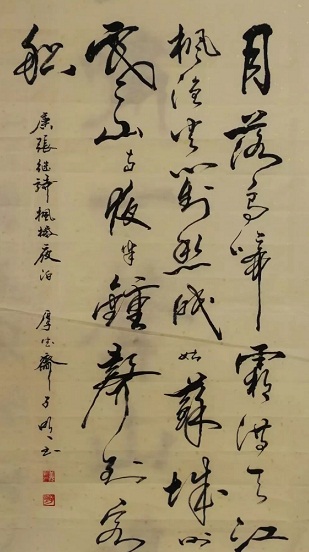 月落烏啼霜滿天江
楓漁火對愁眠姑蘇城外
寒山寺夜半鐘聲到客
船
唐張继詩楓橋夜泊 厚齋子明书